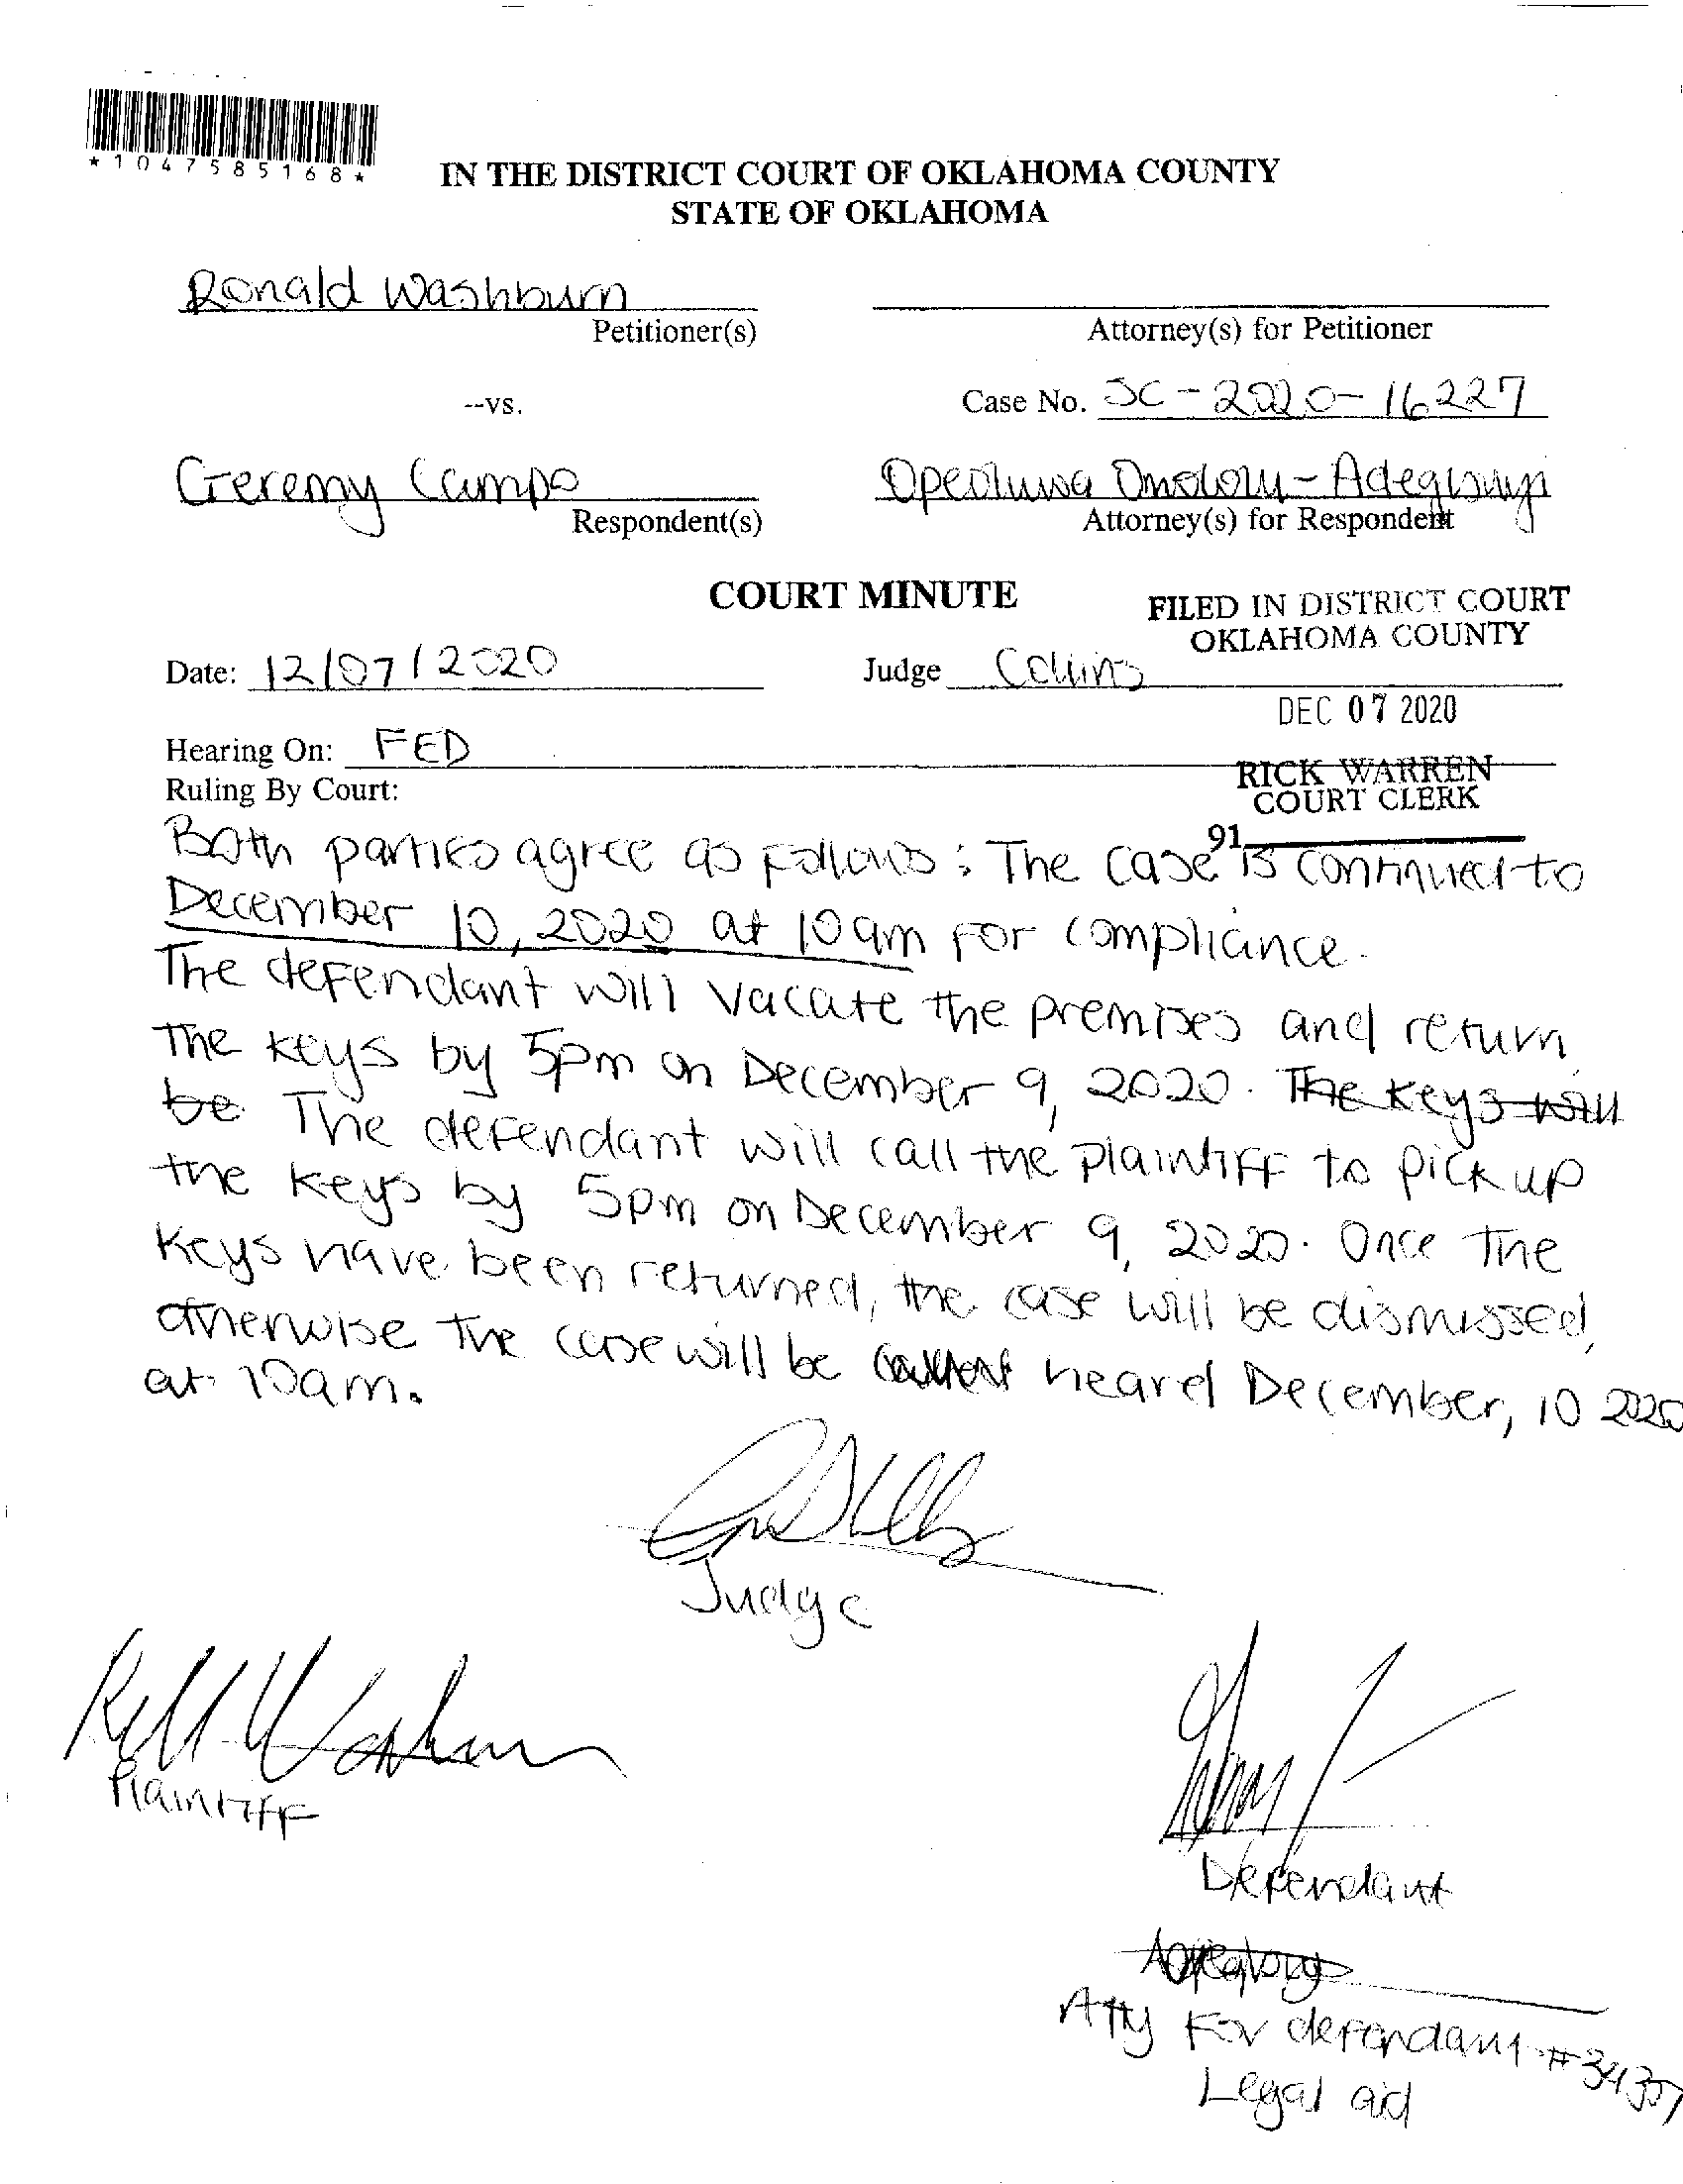 *1047585168*
IN THE DISTRICT COURT OF OKLAHOMA COUNTY
STATE OF OKLAHOMA
Ronald Washburn
Petitioner(s)
Attorney(s) for Petitioner
--vs.
Case No. SC-2020-16227
Geremy Campo
Respondent(s)
Attorney(s) for Respondent
COURT MINUTE
FILED IN DISTRICT COURT
OKLAHOMA COUNTY
Date: 12/07/2020
Judge Collins
DEC 07 2020
Hearing On: FED
RICK WARREN
COURT CLERK
Ruling By Court:
91
Both parties agree as follows: The case is continued to
December 10, 2020 at 10am for compliance.
The defendant will vacate the premises and return
the keys by 5pm on December 9, 2020. The keys will
be The defendant will call the plaintiff to pick up
the keys by 5pm on December 9, 2020. Once the
keys have been returned, the case will be dismissed,
otherwise the case will be heard December, 10 2020
at 10am.
Judge
Plaintiff
Defendant
Atty for defendant #34307
Legal aid